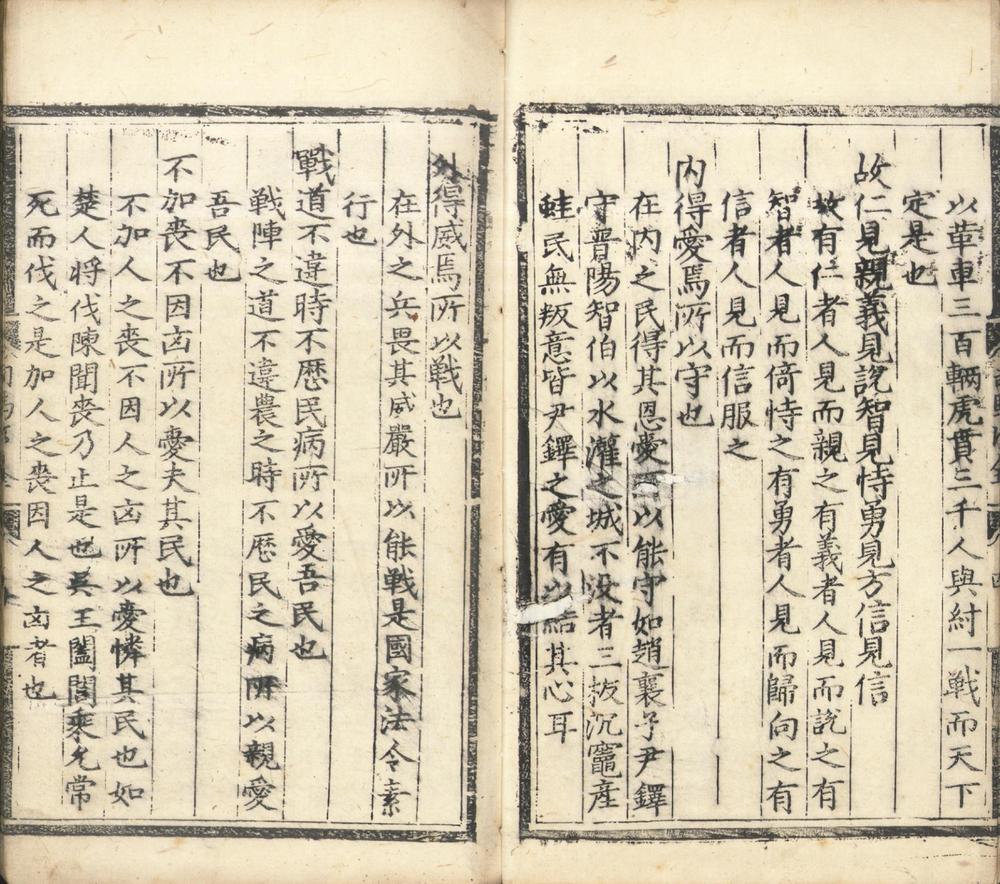 以革車三百輛虎賁三千人與紂一戰而天下
定是也
故仁見親義見說智見恃勇見方信見信
故有仁者人見而親之有義者人見而說之有
智者人見而倚恃之有勇者人見而歸向之有
信者人見而信服之
内得愛焉所以守也
在内之民得其恩愛所以能守如趙襄子尹鐸
守晋陽智伯以水灌之城不没者三板沉竈産
蛙民無叛意皆尹鐸之愛有以結其心耳
外得威焉所以戰也
在外之兵畏其威嚴所以能戰是國家法令素
行也
戰道不違時不歷民病所以愛吾民也
戰陣之道不違農之時不歷民之病所以親愛
吾民也
不加喪不因凶所以愛夫其民也
不加人之喪不因人之凶所以愛憐其民也如
楚人將伐陳聞喪乃止是也吴王闔閭乘允常
死而伐之是加人之喪因人之凶者也